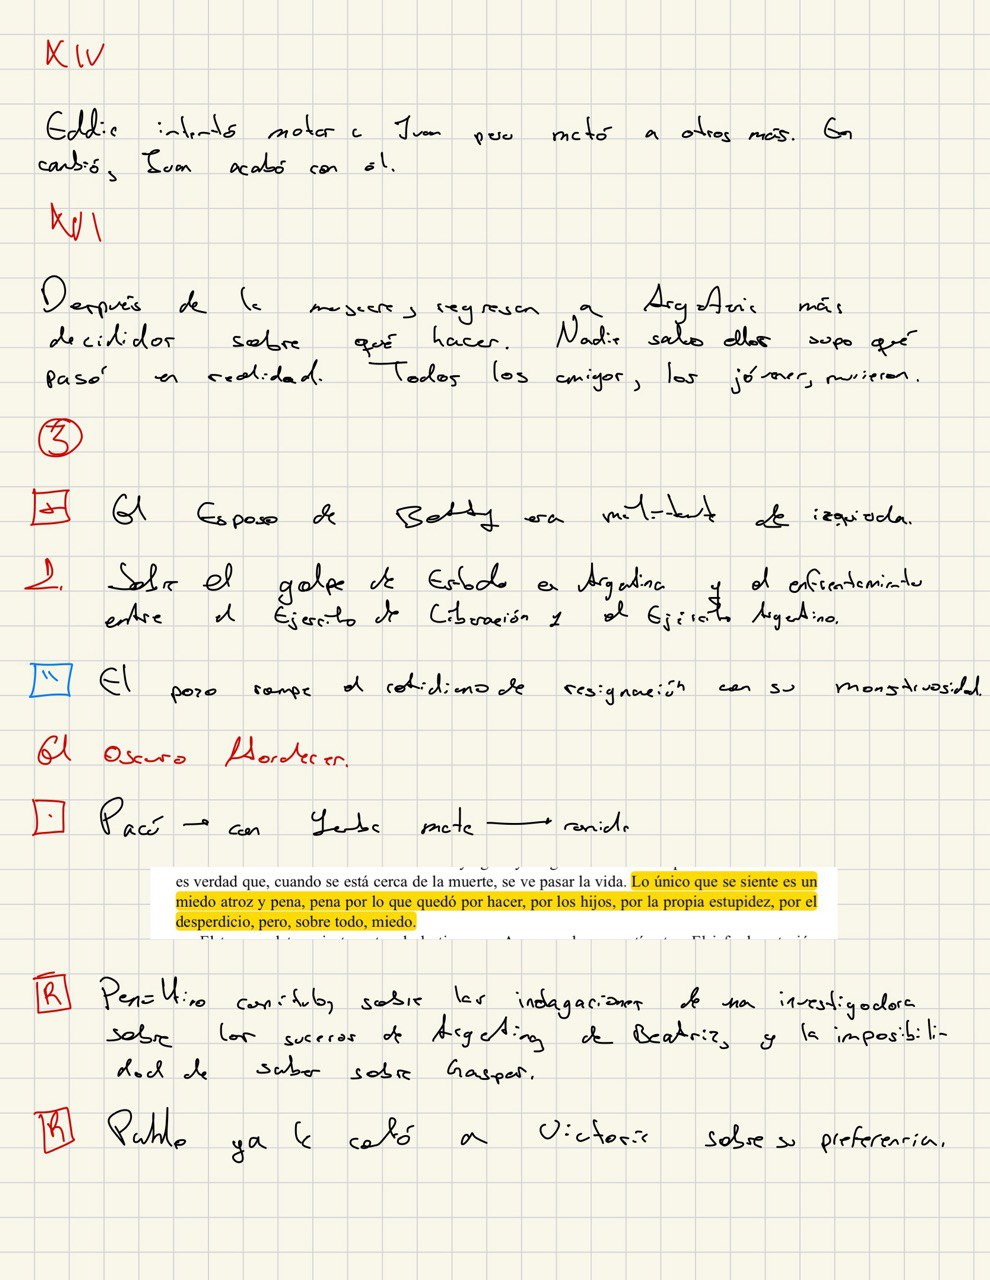 XIV
Eddie intentó matar a Juan pero mató a otros más. En
cambió, Juan acabó con él.
XVI
Después de la masacre, regresan a Argentina más
decididos sobre qué hacer. Nadie salvo ellos supo qué
pasó en realidad. Todos los amigos, los jóvenes, murieron.
3
El Esposo de Betty era militante de izquierda.
2. Sobre el golpe de Estado en Argentina y el enfrentamiento
entre el Ejercito de Liberación y el Ejército Argentino.
" El pozo rompe el cotidiano de resignación con su monstruosidad.
El oscuro Atardecer.
Pacú → con Yerba mate → comida
es verdad que, cuando se está cerca de la muerte, se ve pasar la vida. Lo único que se siente es un
miedo atroz y pena, pena por lo que quedó por hacer, por los hijos, por la propia estupidez, por el
desperdicio, pero, sobre todo, miedo.
R Penúltimo capítulo, sobre las indagaciones de una investigadora
sobre los sucesos de Argentina, de Beatriz, y la imposibili-
dad de saber sobre Gaspar.
R Pablo ya le contó a Victoria sobre su preferencia.